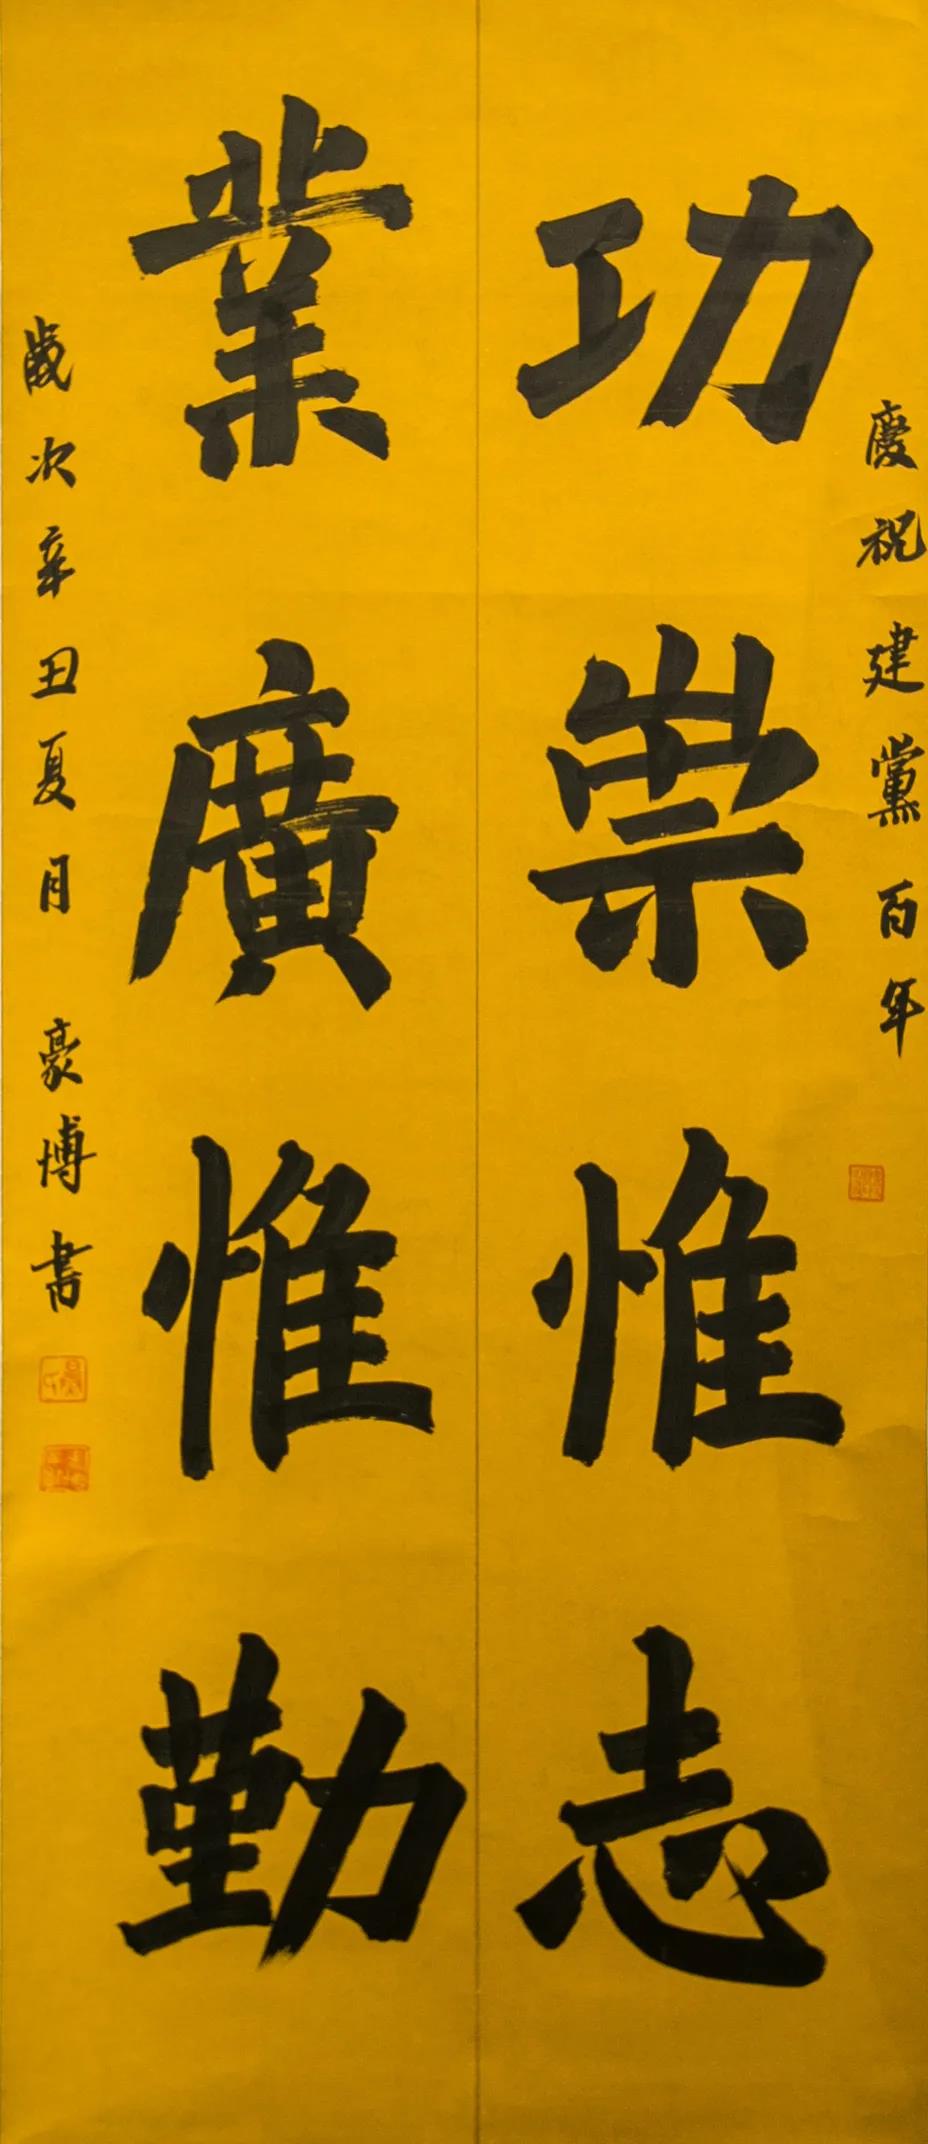 慶祝建黨百年
功崇惟志
業廣惟勤
歲次辛丑夏月 豪博書